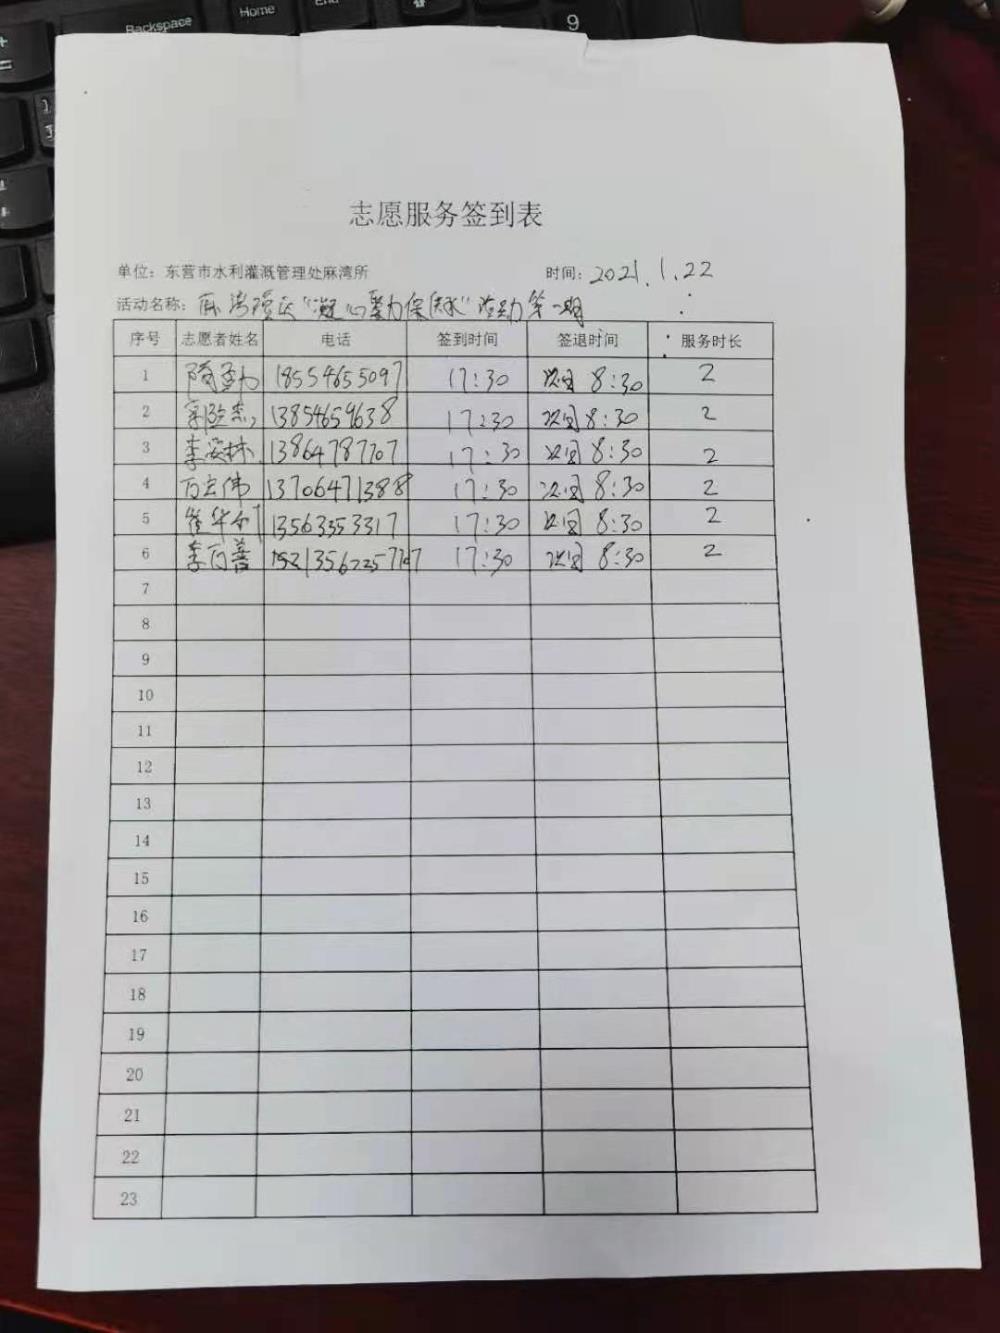 Backspace
Home
End
9
志愿服务签到表
单位：东营市水利灌溉管理处麻湾所
时间：2021.1.22
活动名称：麻湾灌区"凝心聚力保供水"活动第一期
序号 志愿者姓名 电话 签到时间 签退时间 服务时长
1 18554655097 17:30 次日 8:30 2
2 13854659638 17:30 次日 8:30 2
3 李安林 13864787707 17:30 次日 8:30 2
4 13706471388 17:30 次日 8:30 2
5 13563353317 17:30 次日 8:30 2
6 李百善 17:30 次日 8:30 2
7
8
9
10
11
12
13
14
15
16
17
18
19
20
21
22
23